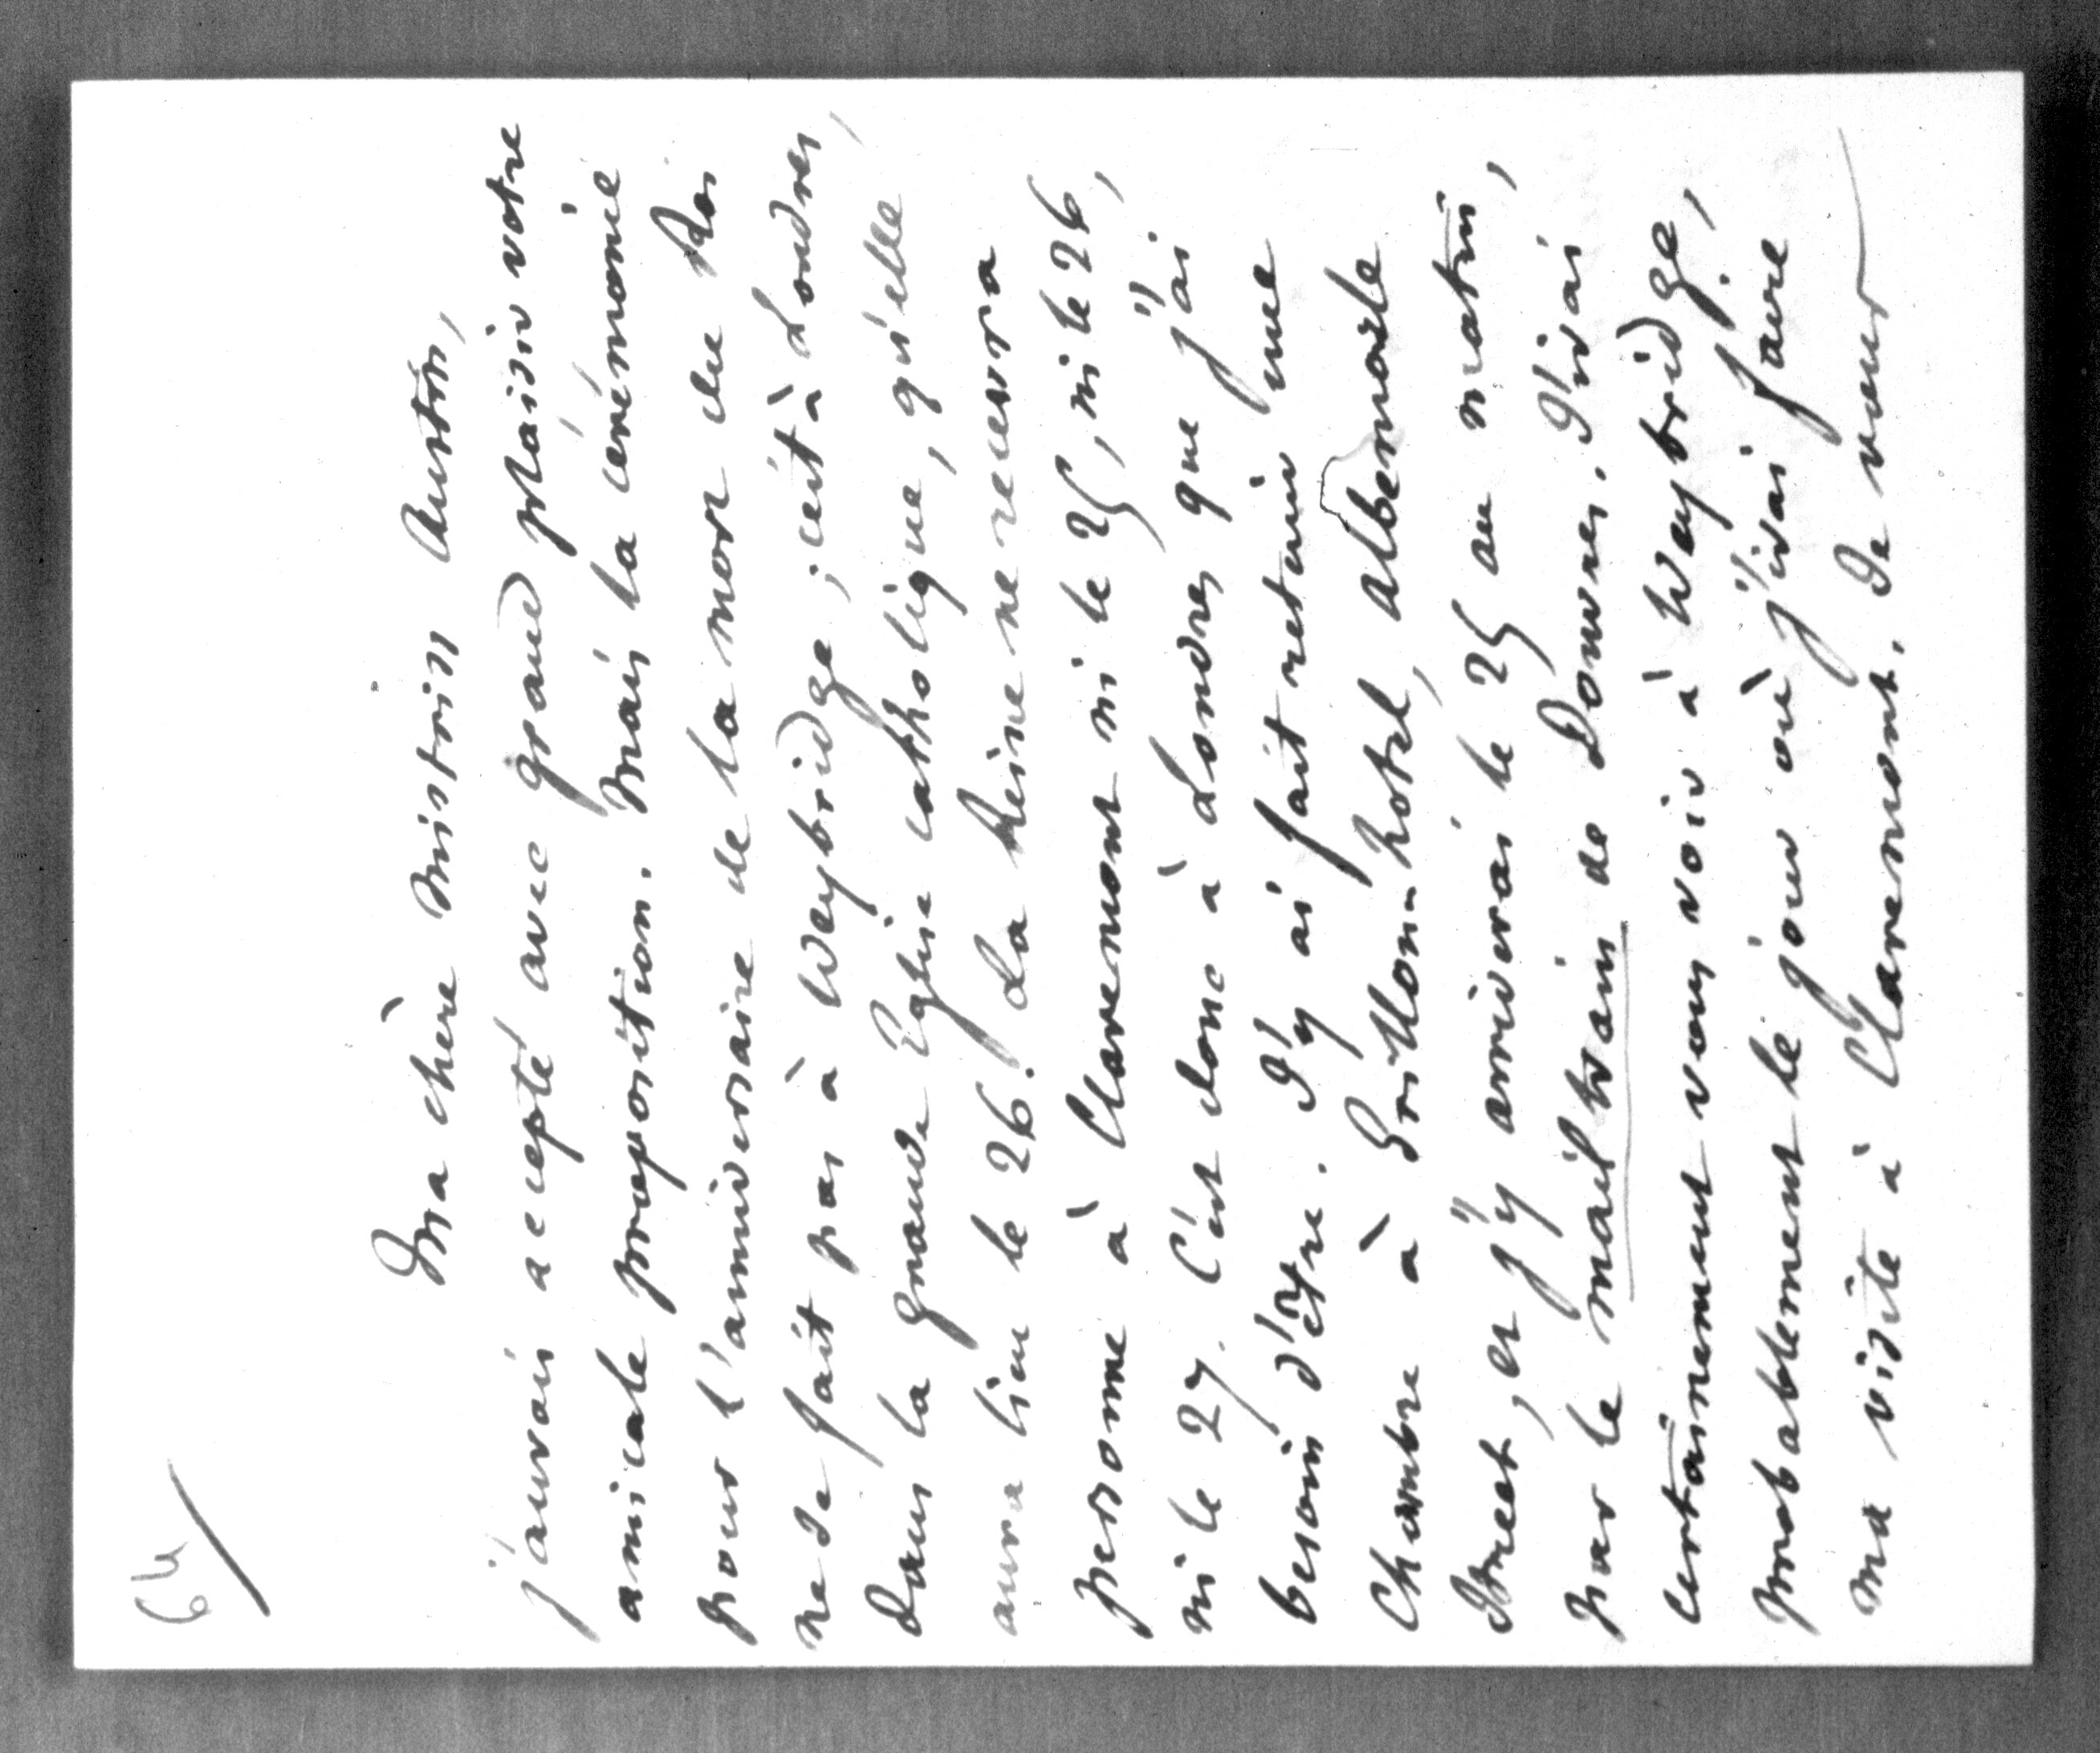 64
Ma chère Mistriss Austin,
j'aurais accepté avec grand plaisir votre
amicale proposition. Mais la cérémonie
pour l'anniversaire de la mort du Roi
ne se fait pas à Weybridge ; c'est à Londres,
dans la grande Eglise catholique, qu'elle
aura lieu le 26. La Reine ne recevra
personne à Claremont ni le 25, ni le 26,
ni le 27. C'est donc à Londres que j'ai
besoin d'être. J'y ai fait retenir une
chambre à Grillon-hotel, Albermarle
Street, et j'y arriverai le 25 au matin,
par le mail train de Douvres. J'irai
certainement vous voir à Weybridge,
probablement le jour où j'irai faire
ma visite à Claremont. Je vous